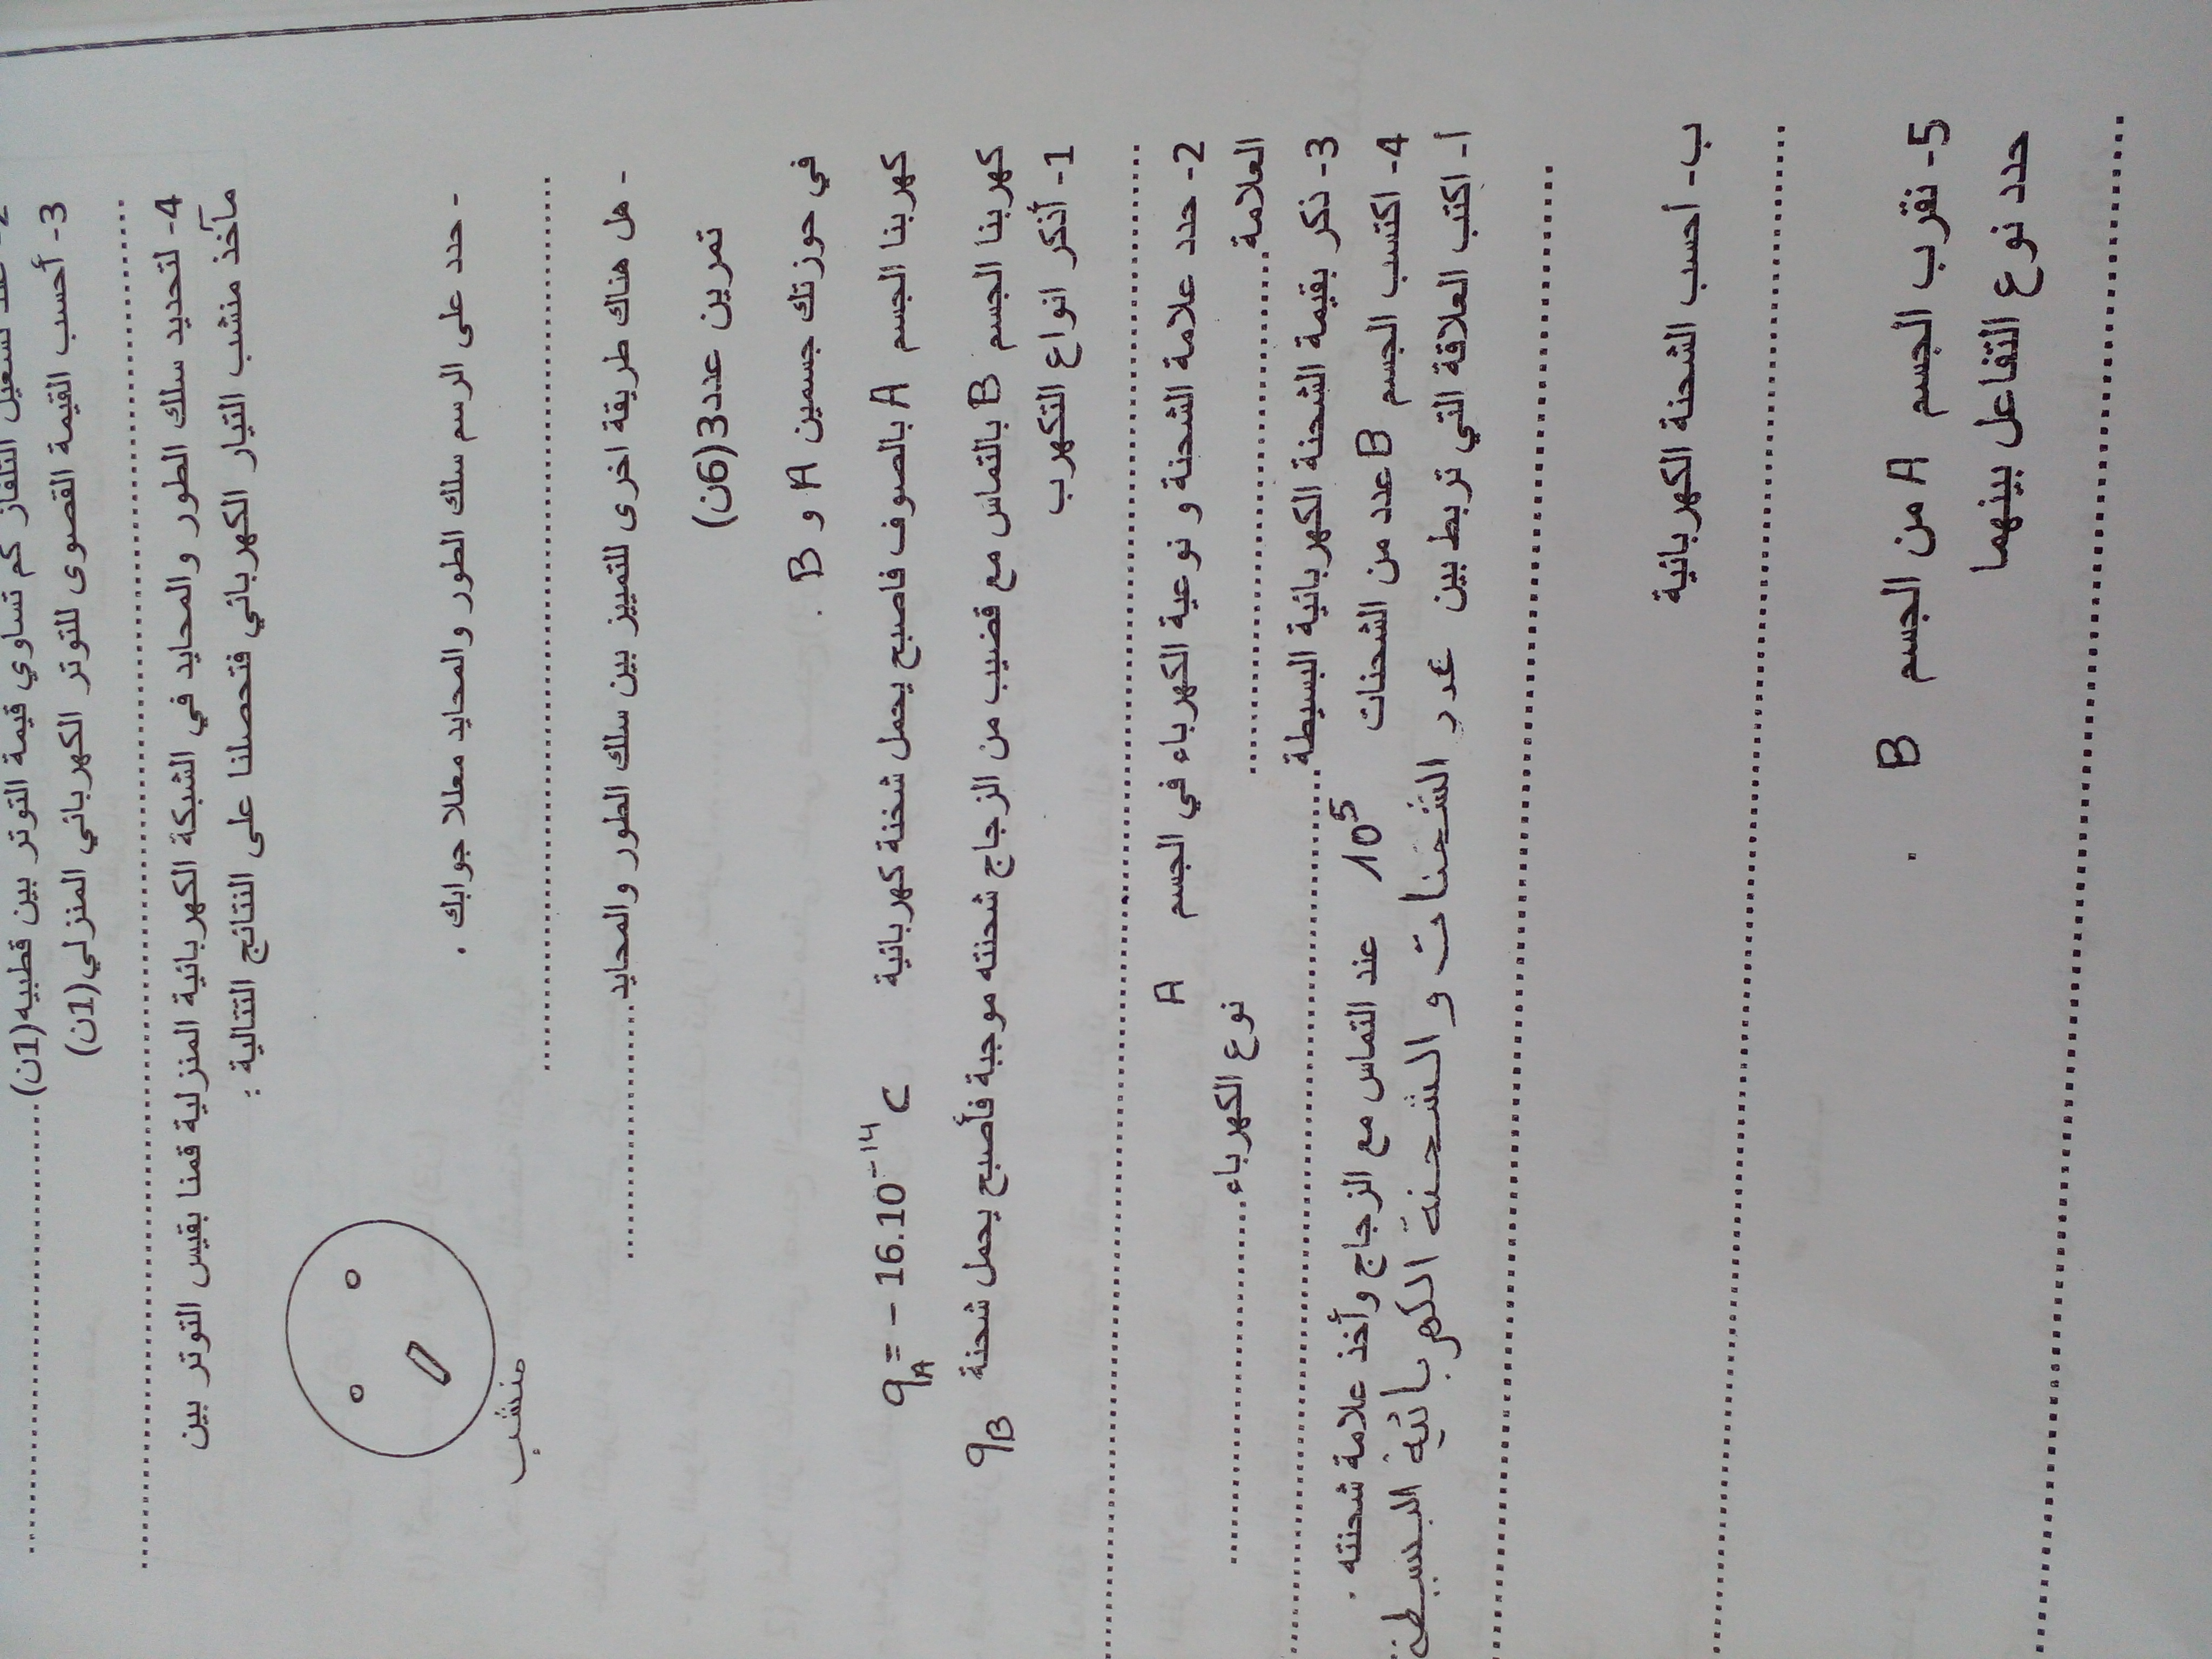 كم تساوي قيمة التوتر بين قطبيه(1ن)
3- أحسب القيمة القصوى للتوتر الكهربائي المنزلي(1ن)
4- لتحديد سلك الطور والمحايد في الشبكة الكهربائية المنزلية قمنا بقيس التوتر بين
مآخذ منشب التيار الكهربائي فتحصلنا على النتائج التتالية :
منشب
- حدد على الرسم سلك الطور والمحايد معللا جوابك .
- هل هناك طريقة اخرى للتمييز بين سلك الطور والمحايد
تمرين عدد3(6ن)
في حوزتك جسمين A و B .
كهربنا الجسم A بالصوف فاصبح يحمل شخنة كهربائية qA = - 16.10⁻¹⁴ C
كهربنا الجسم B بالتماس مع قضيب من الزجاج شحنته موجبة فأصبح يحمل شحنة qB
1- أذكر انواع التكهرب
2- حدد علامة الشحنة و نوعية الكهرباء في الجسم A
العلامة نوع الكهرباء
3- ذكر بقيمة الشحنة الكهربائية البسيطة
4- اكتسب الجسم B عدد من الشحنات 10⁵ عند التماس مع الزجاج وأخذ علامة شحنته .
أ- اكتب العلاقة التي تربط بين عدد الشحنات و الشحنة الكهربائية البسيطة
ب- أحسب الشحنة الكهربائية
5- نقرب الجسم A من الجسم B .
حدد نوع التفاعل بينهما